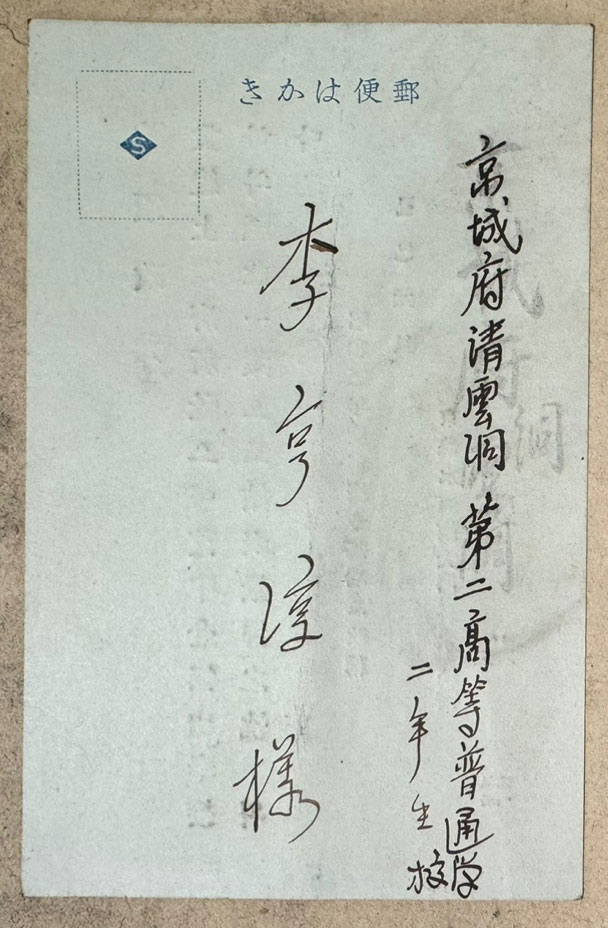 郵便はかき
京城府清雲洞 第二高等普通学校
二年生
李亨淳様
S